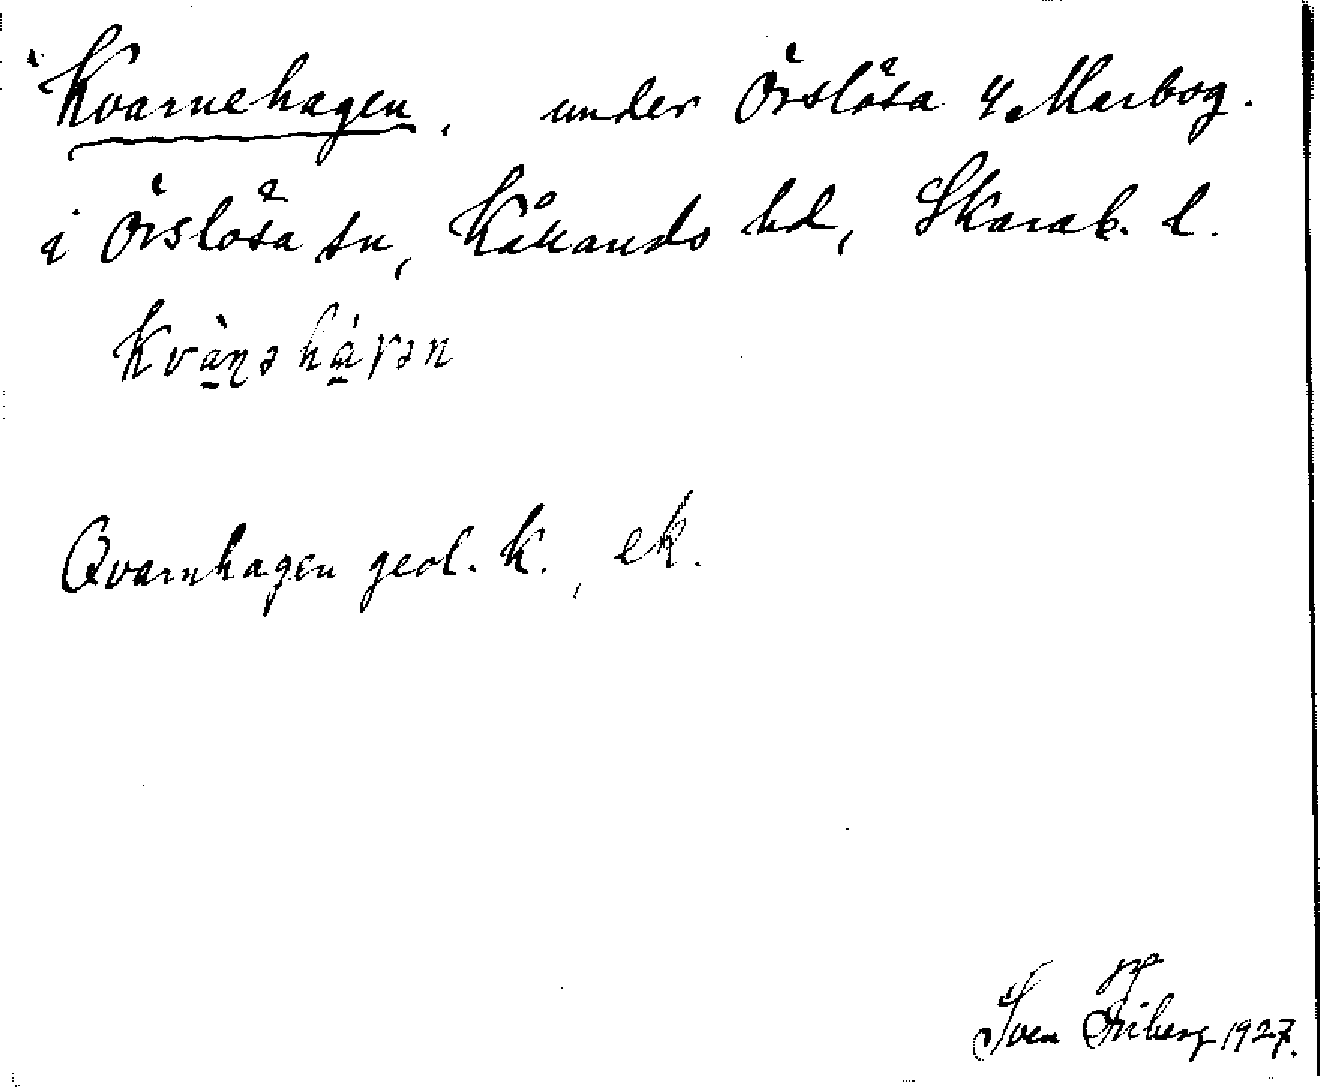 Kvarnehagen, under Örslösa 4 Marbog.
i Örslösa sn, Kållands hd, Skarab. l.
Kvàṇəháγən
Qvarnhagen geol. k., ek.
Sven Friberg 1927.